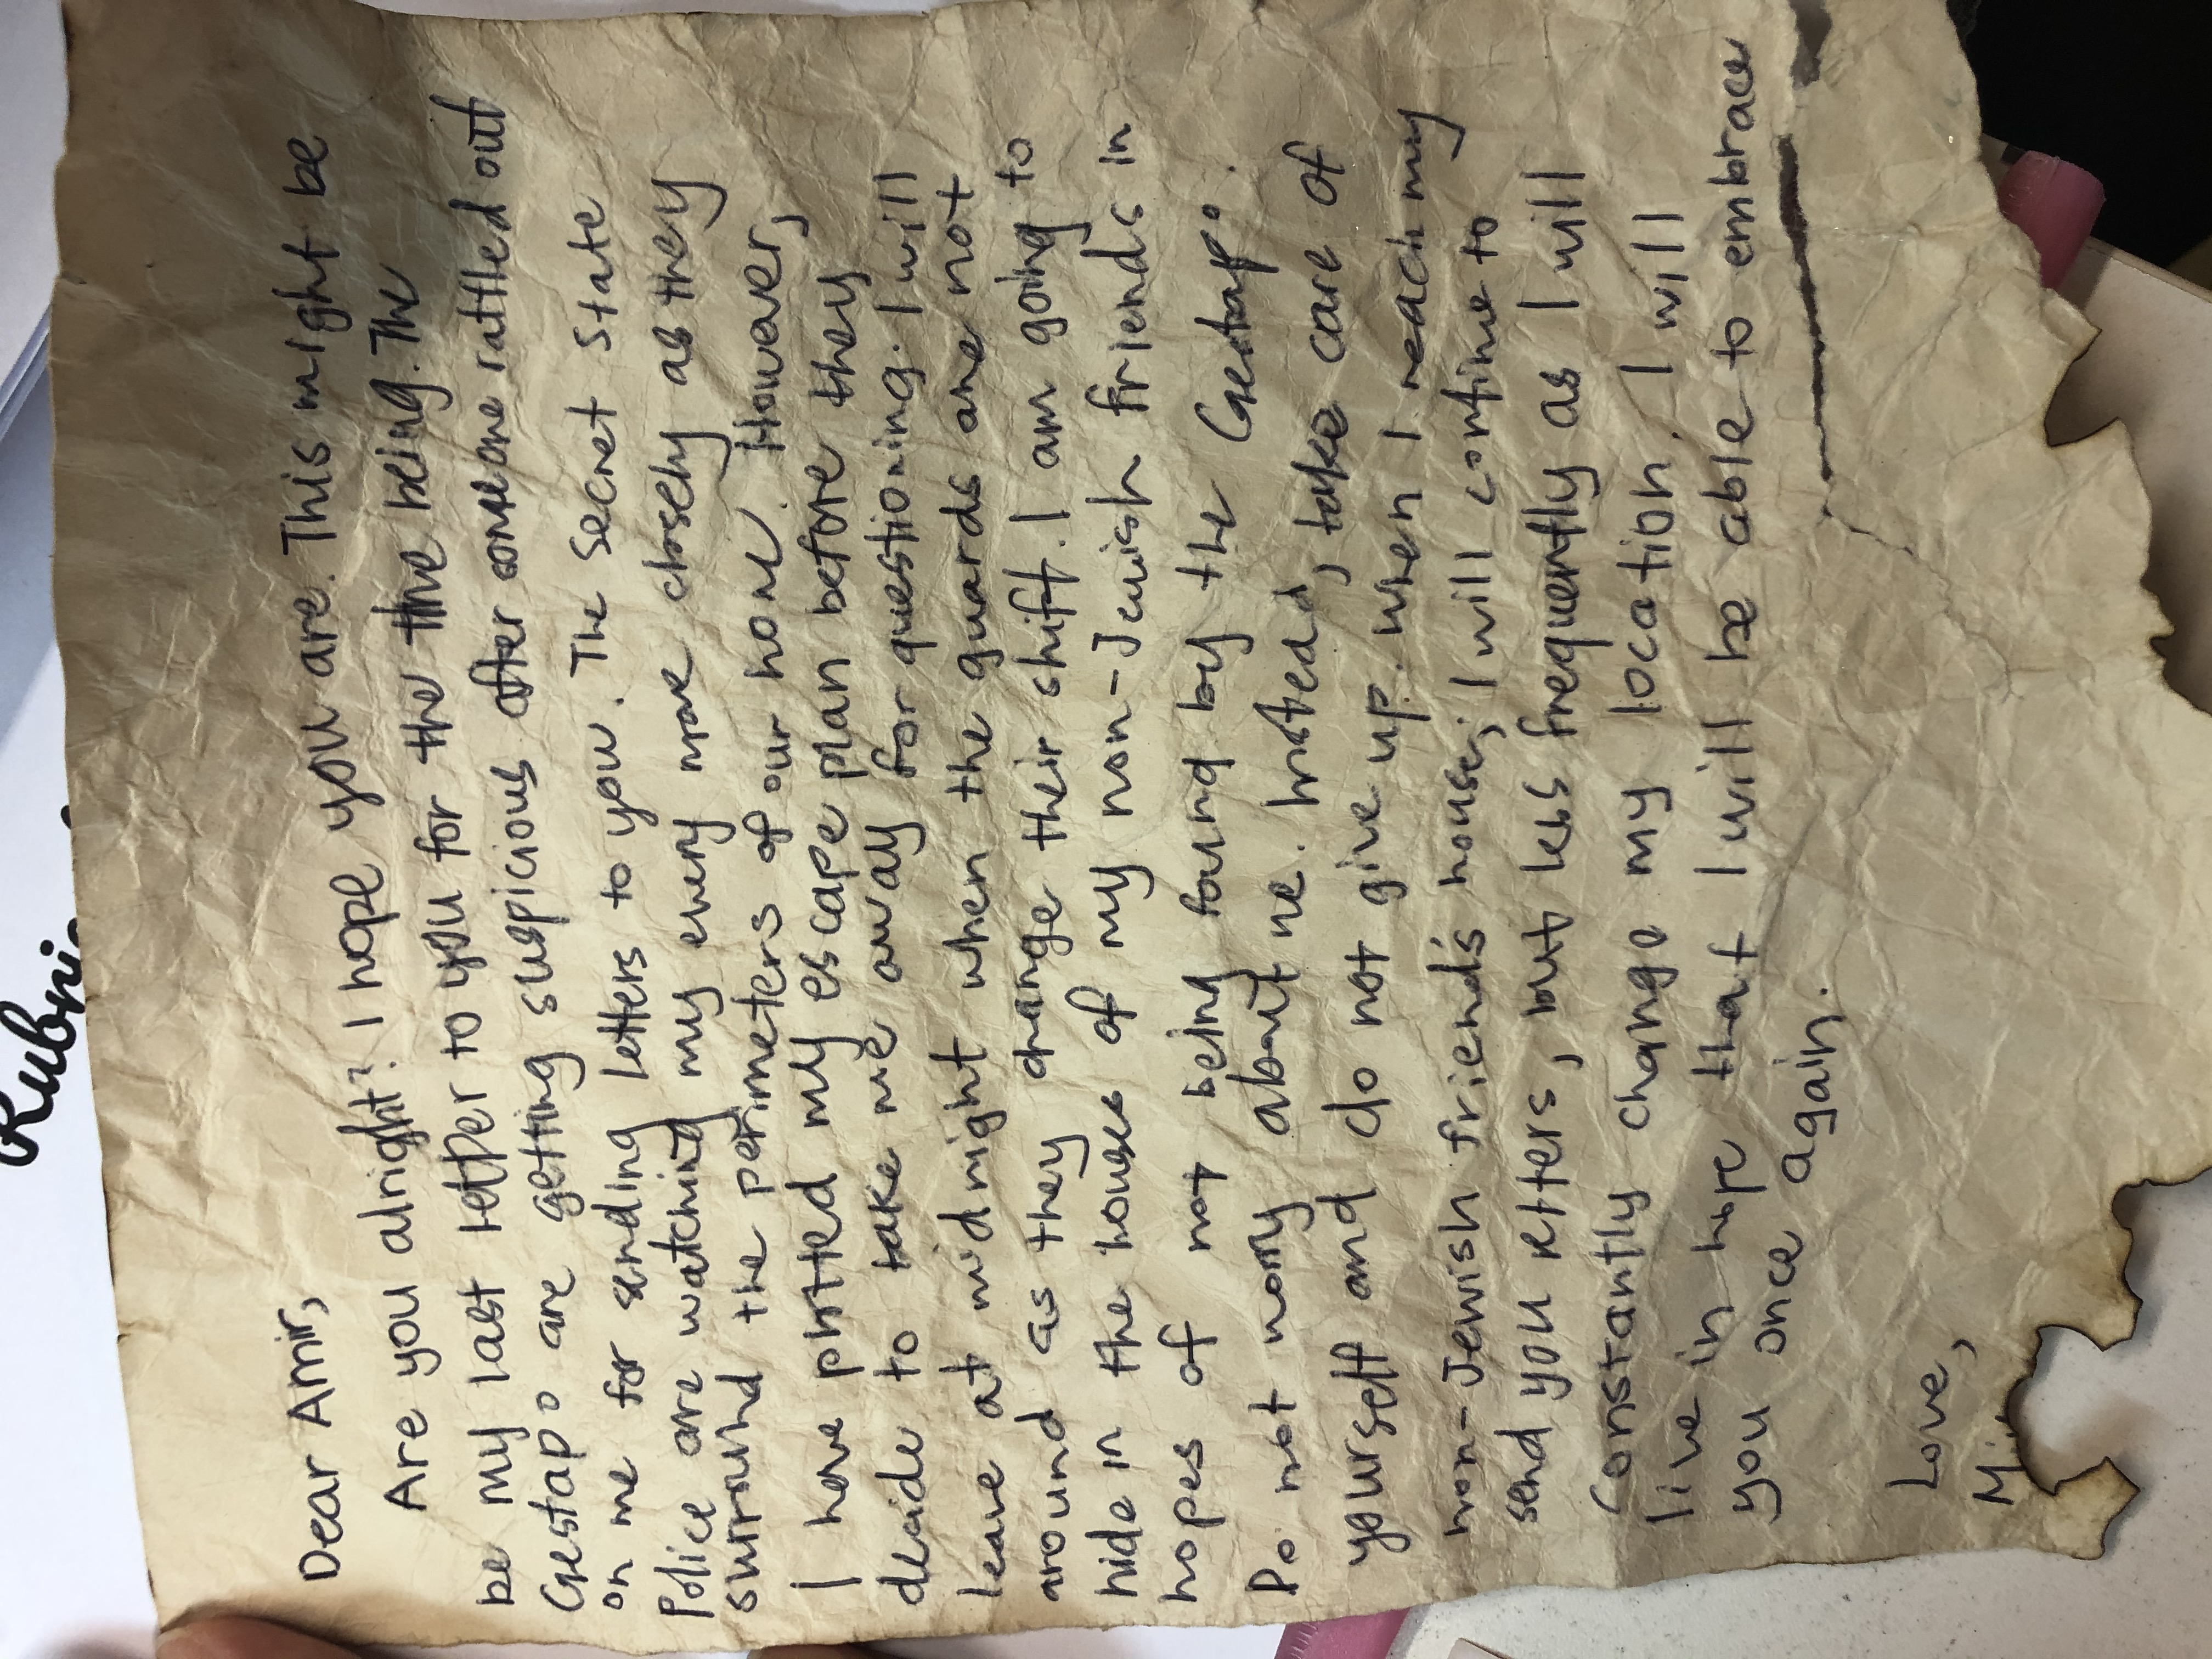 Rubri
Dear Amir,
Are you alright? I hope you are. This might be
be my last letter to you for the time being. The
Gestapo are getting suspicious after someone rattled out
on me for sending letters to you. The Secret State
Police are watching my every move closely as they
surround the perimeters of our home. However,
I have plotted my escape plan before they
decide to take me away for questioning. I will
leave at midnight when the guards are not
around as they change their shift. I am going to
hide in the houses of my non-Jewish friends in
hopes of not being found by the Gestapo.
Do not worry about me. Instead, take care of
yourself and do not give up. When I reach my
non-Jewish friend's house, I will continue to
send you letters, but less frequently as I will
constantly change my location. I will
live in hope that I will be able to embrace
you once again.
Love,